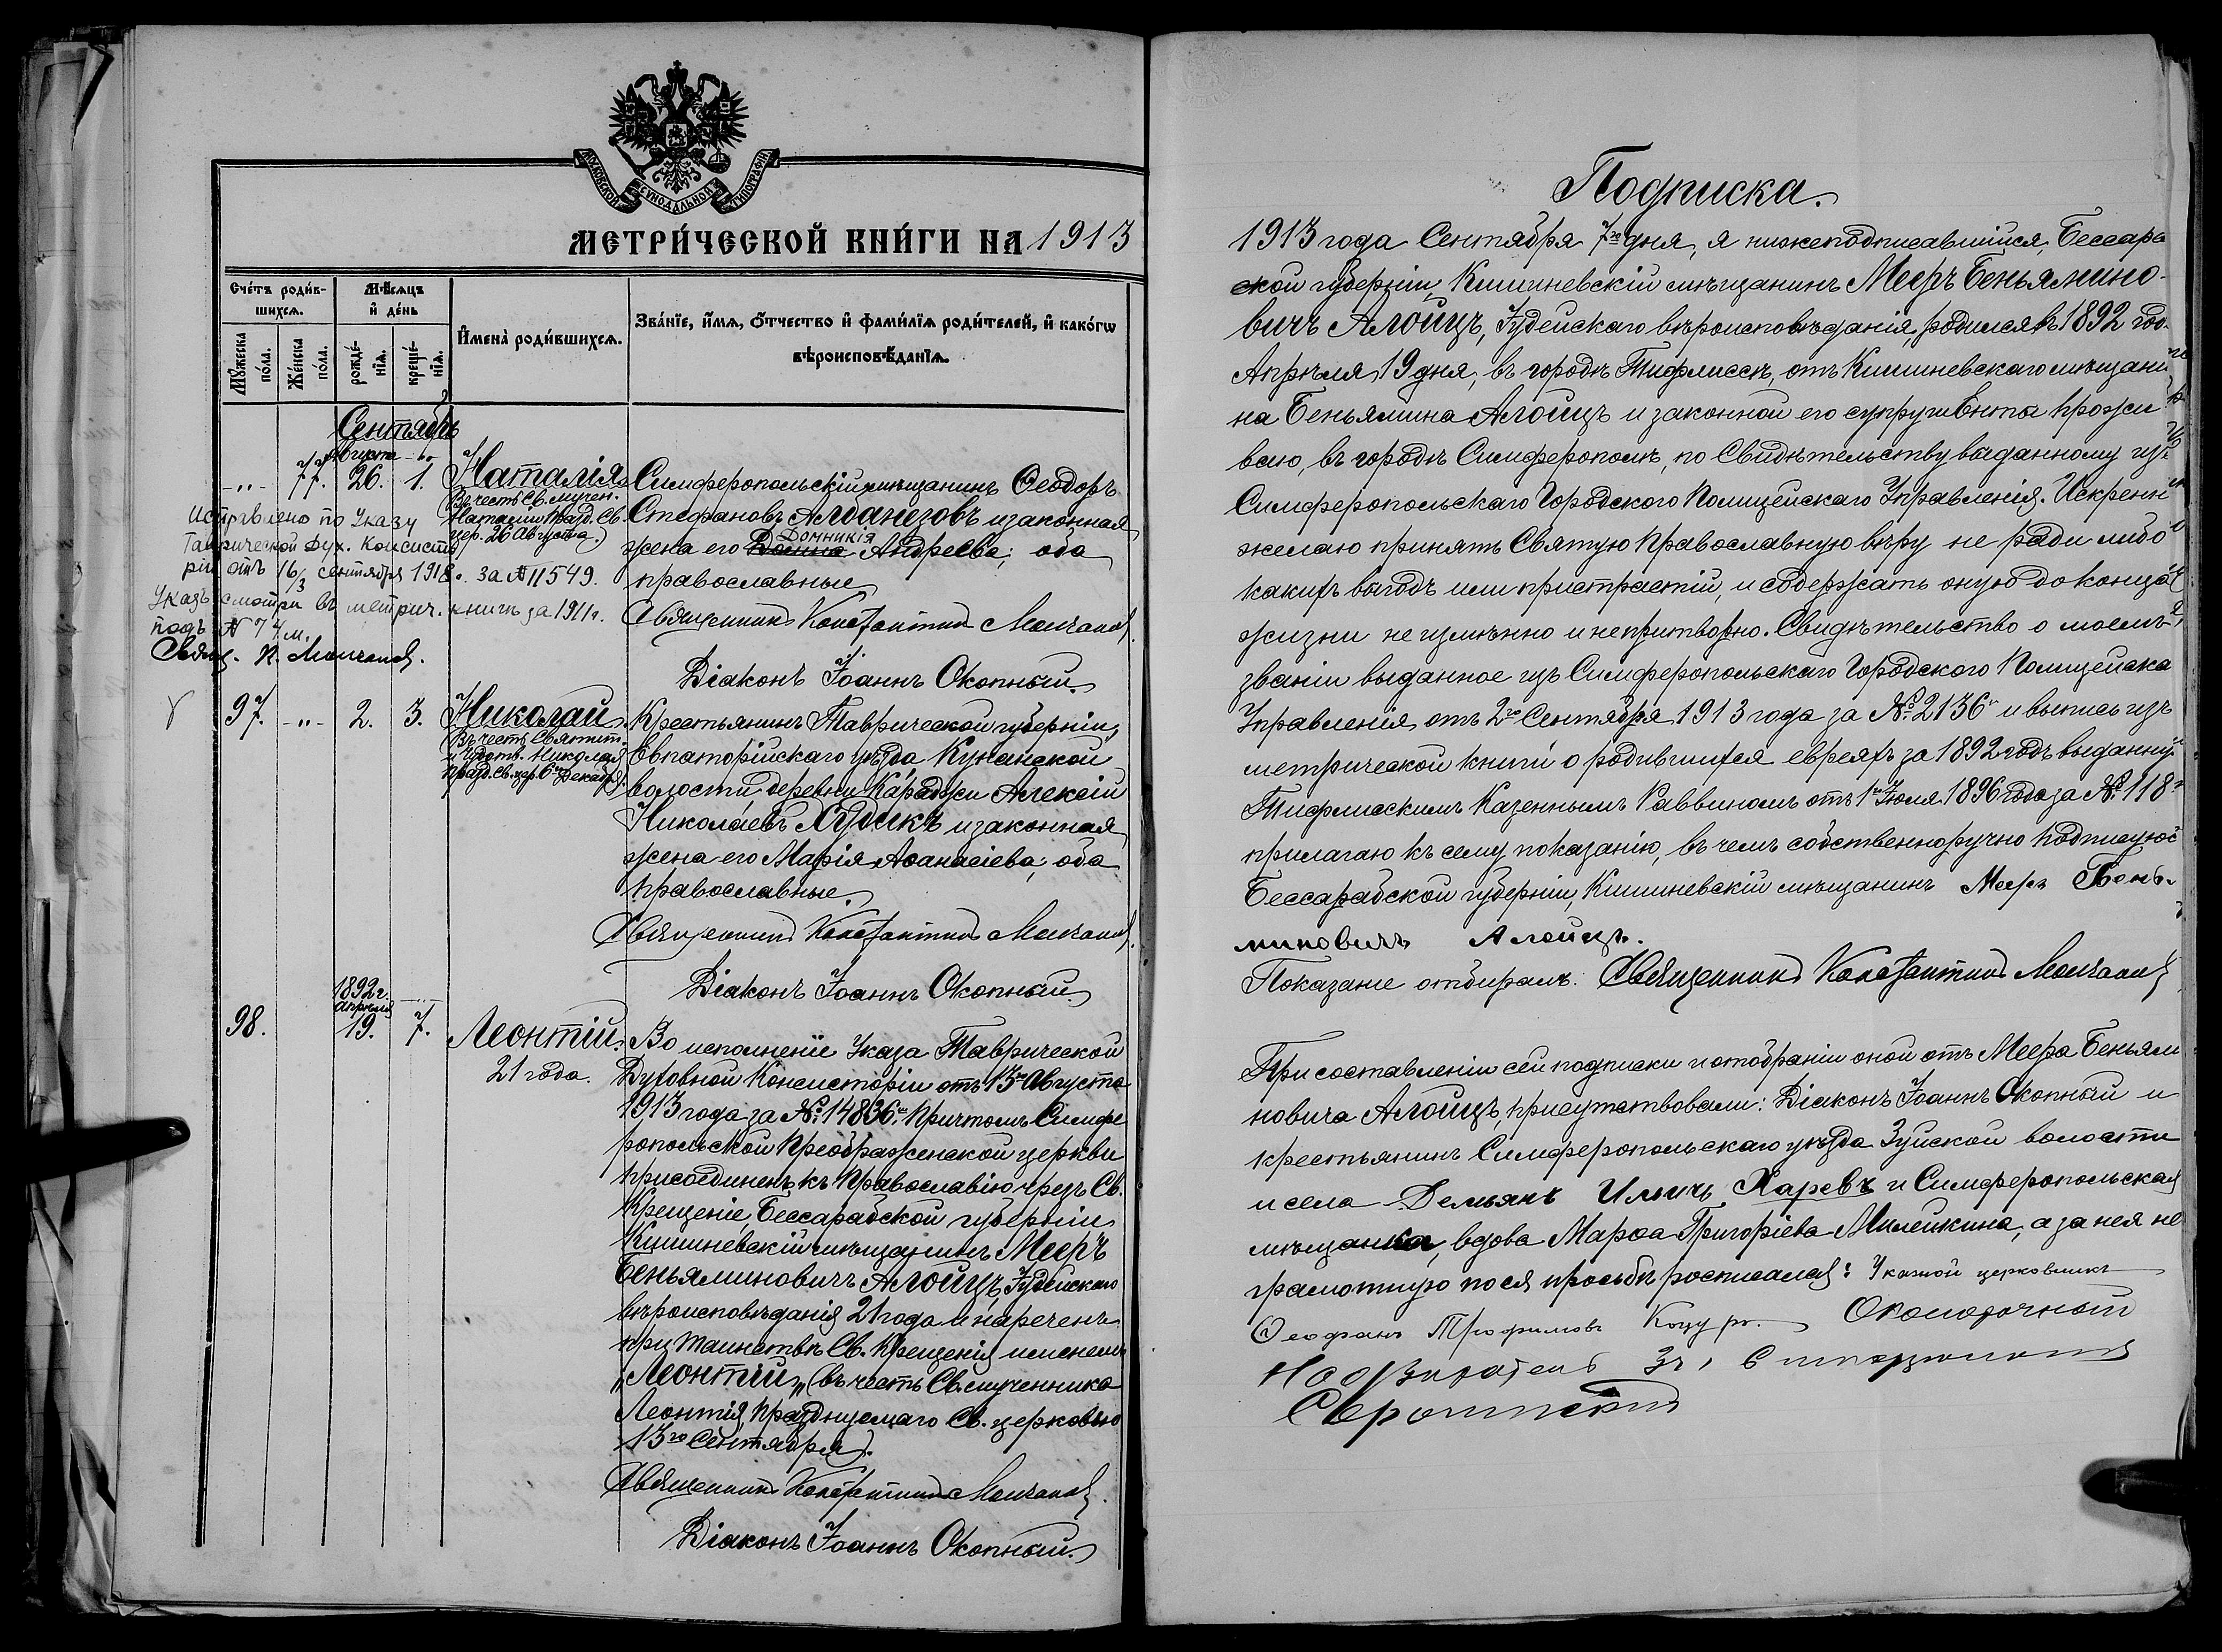 МОСКОВСКОЙ СѴНОДАЛЬНОЙ ТИПОГРАФІИ
МЕТРИ́ЧЕСКОЙ КНИ́ГИ НА 1913
Сче́тъ роди́вшихсѧ.
Мꙋ́жеска по́ла.
Же́нска по́ла.
Мѣ́сѧцъ и҆ де́нь
рожде́нїѧ.
креще́нїѧ.
И҆мена̀ роди́вшихсѧ.
Зва́нїе, и҆́мѧ, ѻ҆́тчество и҆ фами́лїѧ роди́телей, и҆ како́гѡ
вѣроисповѣ́данїѧ.
Сентябрь
Августа
-"- 77. 26. 1. Наталія
Въ честь Св. мучен.
Наталіи празд. Св.
цер. 26 Августа.)
Симферопольскій мѣщанинъ Ѳеодоръ
Стефановъ Алманезовъ и законная
жена его Домна Домникія Андреева; оба
православные
Священникъ Константинъ Молчановъ.
Діаконъ Іоаннъ Окопный.
Исправлено по Указу
Таврической Дух. Консисто
ріи отъ 16/3 сентября 1918 г. за № 11549.
Указъ смотри въ метрич. книгѣ за 1911 г.
подъ № 74 м.
Свящ. К. Молчановъ.
97. -"- 2. 3. Николай.
Въ честь Святит.
и Чудотв. Николая
празд. Св. цер. 6го Декабря).
Крестьянинъ Таврической губерніи,
Евпаторійскаго уѣзда, Кунанской
волости, деревни Караджи Алексій
Николаевъ Худикъ и законная
жена его Марія Аѳанасіева; оба
православные.
Священникъ Константинъ Молчановъ.
Діаконъ Іоаннъ Окопный.
1892 г.
апрѣля
98. 19. 7. Леонтій.
21 года.
Во исполненіе Указа Таврической
Духовной Консисторіи отъ 13го Августа
1913 года за № 14836м. Причтомъ Симфе
ропольской Преображенской церкви
присоединенъ къ Православію чрезъ Св.
Крещеніе, Бессарабской губерніи
Кишиневскій мѣщанинъ Мееръ
Беньяминовичъ Алойцъ, Іудейскаго
вѣроисповѣданія 21 года и нареченъ
при таинствѣ Св. Крещенія именемъ
„Леонтій„ (въ честь Св. мученника
Леонтія, празднуемаго Св. церковью
13го Сентября).
Священникъ Константинъ Молчановъ.
Діаконъ Іоаннъ Окопный.
Подписка.
1913 года Сентября 7го дня, я нижеподписавшийся, Бессараб
ской губерніи, Кишиневскій мѣщанинъ Мееръ Беньямино-
вичъ Алойцъ, Іудейскаго вѣроисповѣданія, родился въ 1892 год
Апрѣля 19 дня, въ городѣ Тифлиссѣ, отъ Кишиневскаго мѣщани
на Беньямина Алойцъ и законной его супруги Енты прожи
ваю, въ городѣ Симферополѣ, по Свидѣтельству выданному изъ
Симферопольскаго Городского Полицейскаго Управленія. Искренн
желаю принять Святую Православную вѣру не ради либо
какихъ выгодъ или пристрастій, и содержать оную до конца
жизни неизмѣнно и непритворно. Свидѣтельство о моемъ
званіи выданное изъ Симферопольскаго Городского Полицейска
Управленія, отъ 2го Сентября 1913 года за № 2136м и выпись изъ
метрической книги о родившихся евреяхъ за 1892 годъ выданну
Тифлисскимъ Казеннымъ Раввиномъ отъ 1го Іюля 1896 года за № 118
прилагаю къ сему показанію, въ чемъ собственноручно подписуюс
Бессарабской губерніи, Кишиневскій мѣщанинъ Мееръ Бень-
миновичъ Алойцъ.
Показаніе отбиралъ: Священникъ Константинъ Молчановъ
При составленіи сей подписки и отобраніи оной отъ Меера Беньями
новича Алойцъ, присутствовали: Діаконъ Іоаннъ Окопный и
крестьянинъ Симферопольскаго уѣзда Зуйской волости
и села Демьянъ Ильичъ Харевъ и Симферопольская
мѣщанка, вдова Марѳа Григоріева Милейкина, а за нея не
грамотную по ея просьбѣ росписался:
Ѳеофанъ Трофимовъ Околоточный
Надзиратель